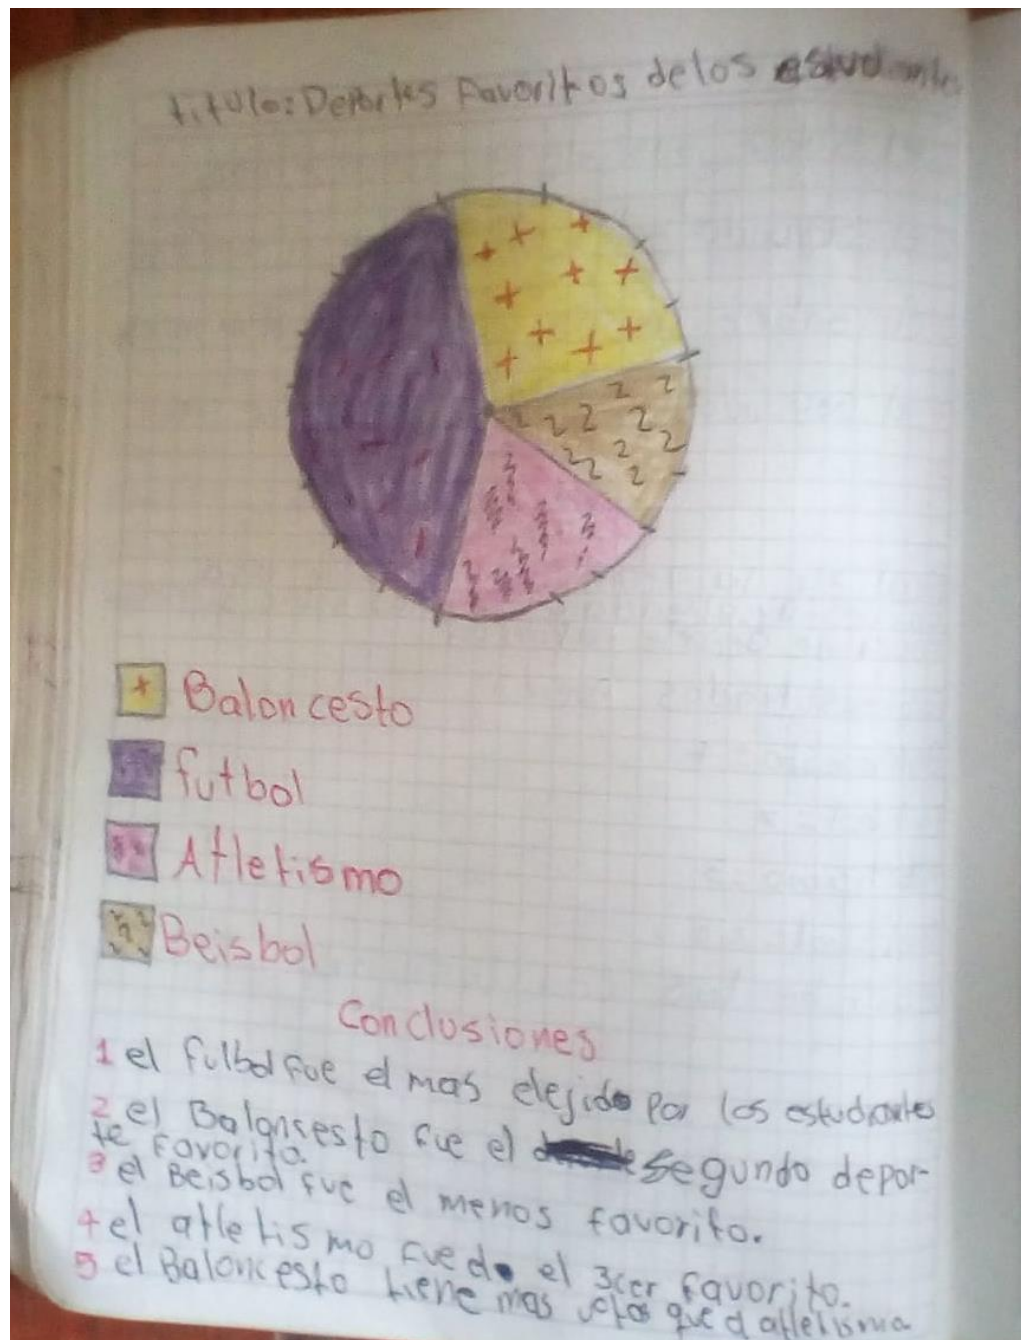 titulo: Deportes Favoritos delos estudiantes
Baloncesto
futbol
Atletismo
Beisbol
Conclusiones
1 el futbol fue el mas elejido por los estudiantes
2 el Balonsesto fue el segundo depor-
te favorito.
3 el Beisbol fue el menos favorito.
4 el atletismo fue el 3cer favorito.
5 el Baloncesto tiene mas votos que el atletismo